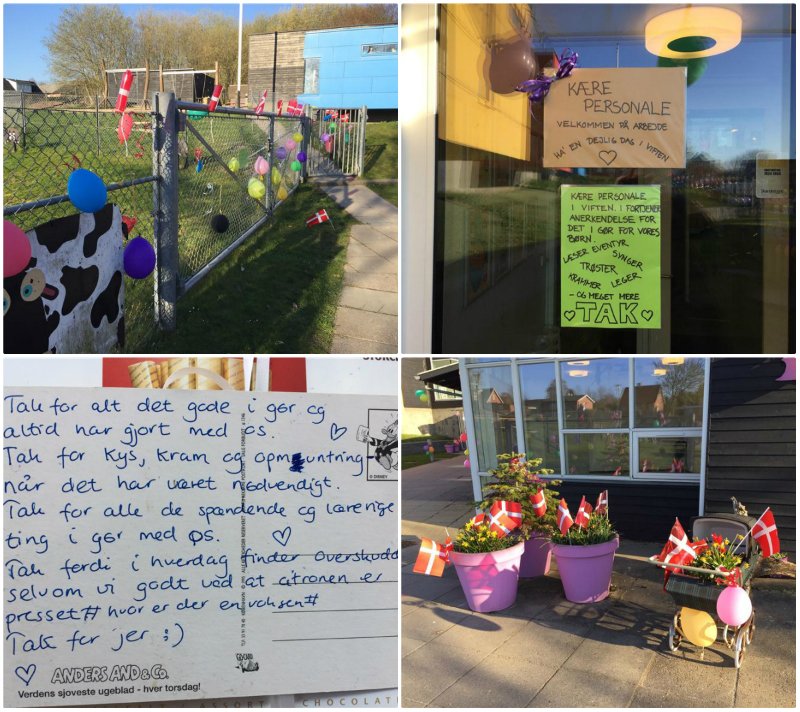 KÆRE
PERSONALE
VELKOMMEN PÅ ARBEJDE
HA' EN DEJLIG DAG I VIFTEN
KÆRE PERSONALE
I VIFTEN. I FORTJENER
ANERKENDELSE FOR
DET I GØR FOR VORES
BØRN.
LÆSER EVENTYR
SYNGER
TRØSTER
KRAMMER LEGER
- OG MEGET MERE
TAK
Tak for alt det gode i gør og
altid har gjort med os.
Tak for kys, kram og opmuntring
når det har været nødvendigt.
Tak for alle de spændende og lærerige
ting i gør med os.
Tak fordi i hverdag finder overskudd
selvom vi godt ved at citronen er
presset # hvor er der en voksen #
Tak for jer ;)
ANDERS AND & CO.
Verdens sjoveste ugeblad - hver torsdag!
© DISNEY
CHOCOLAT